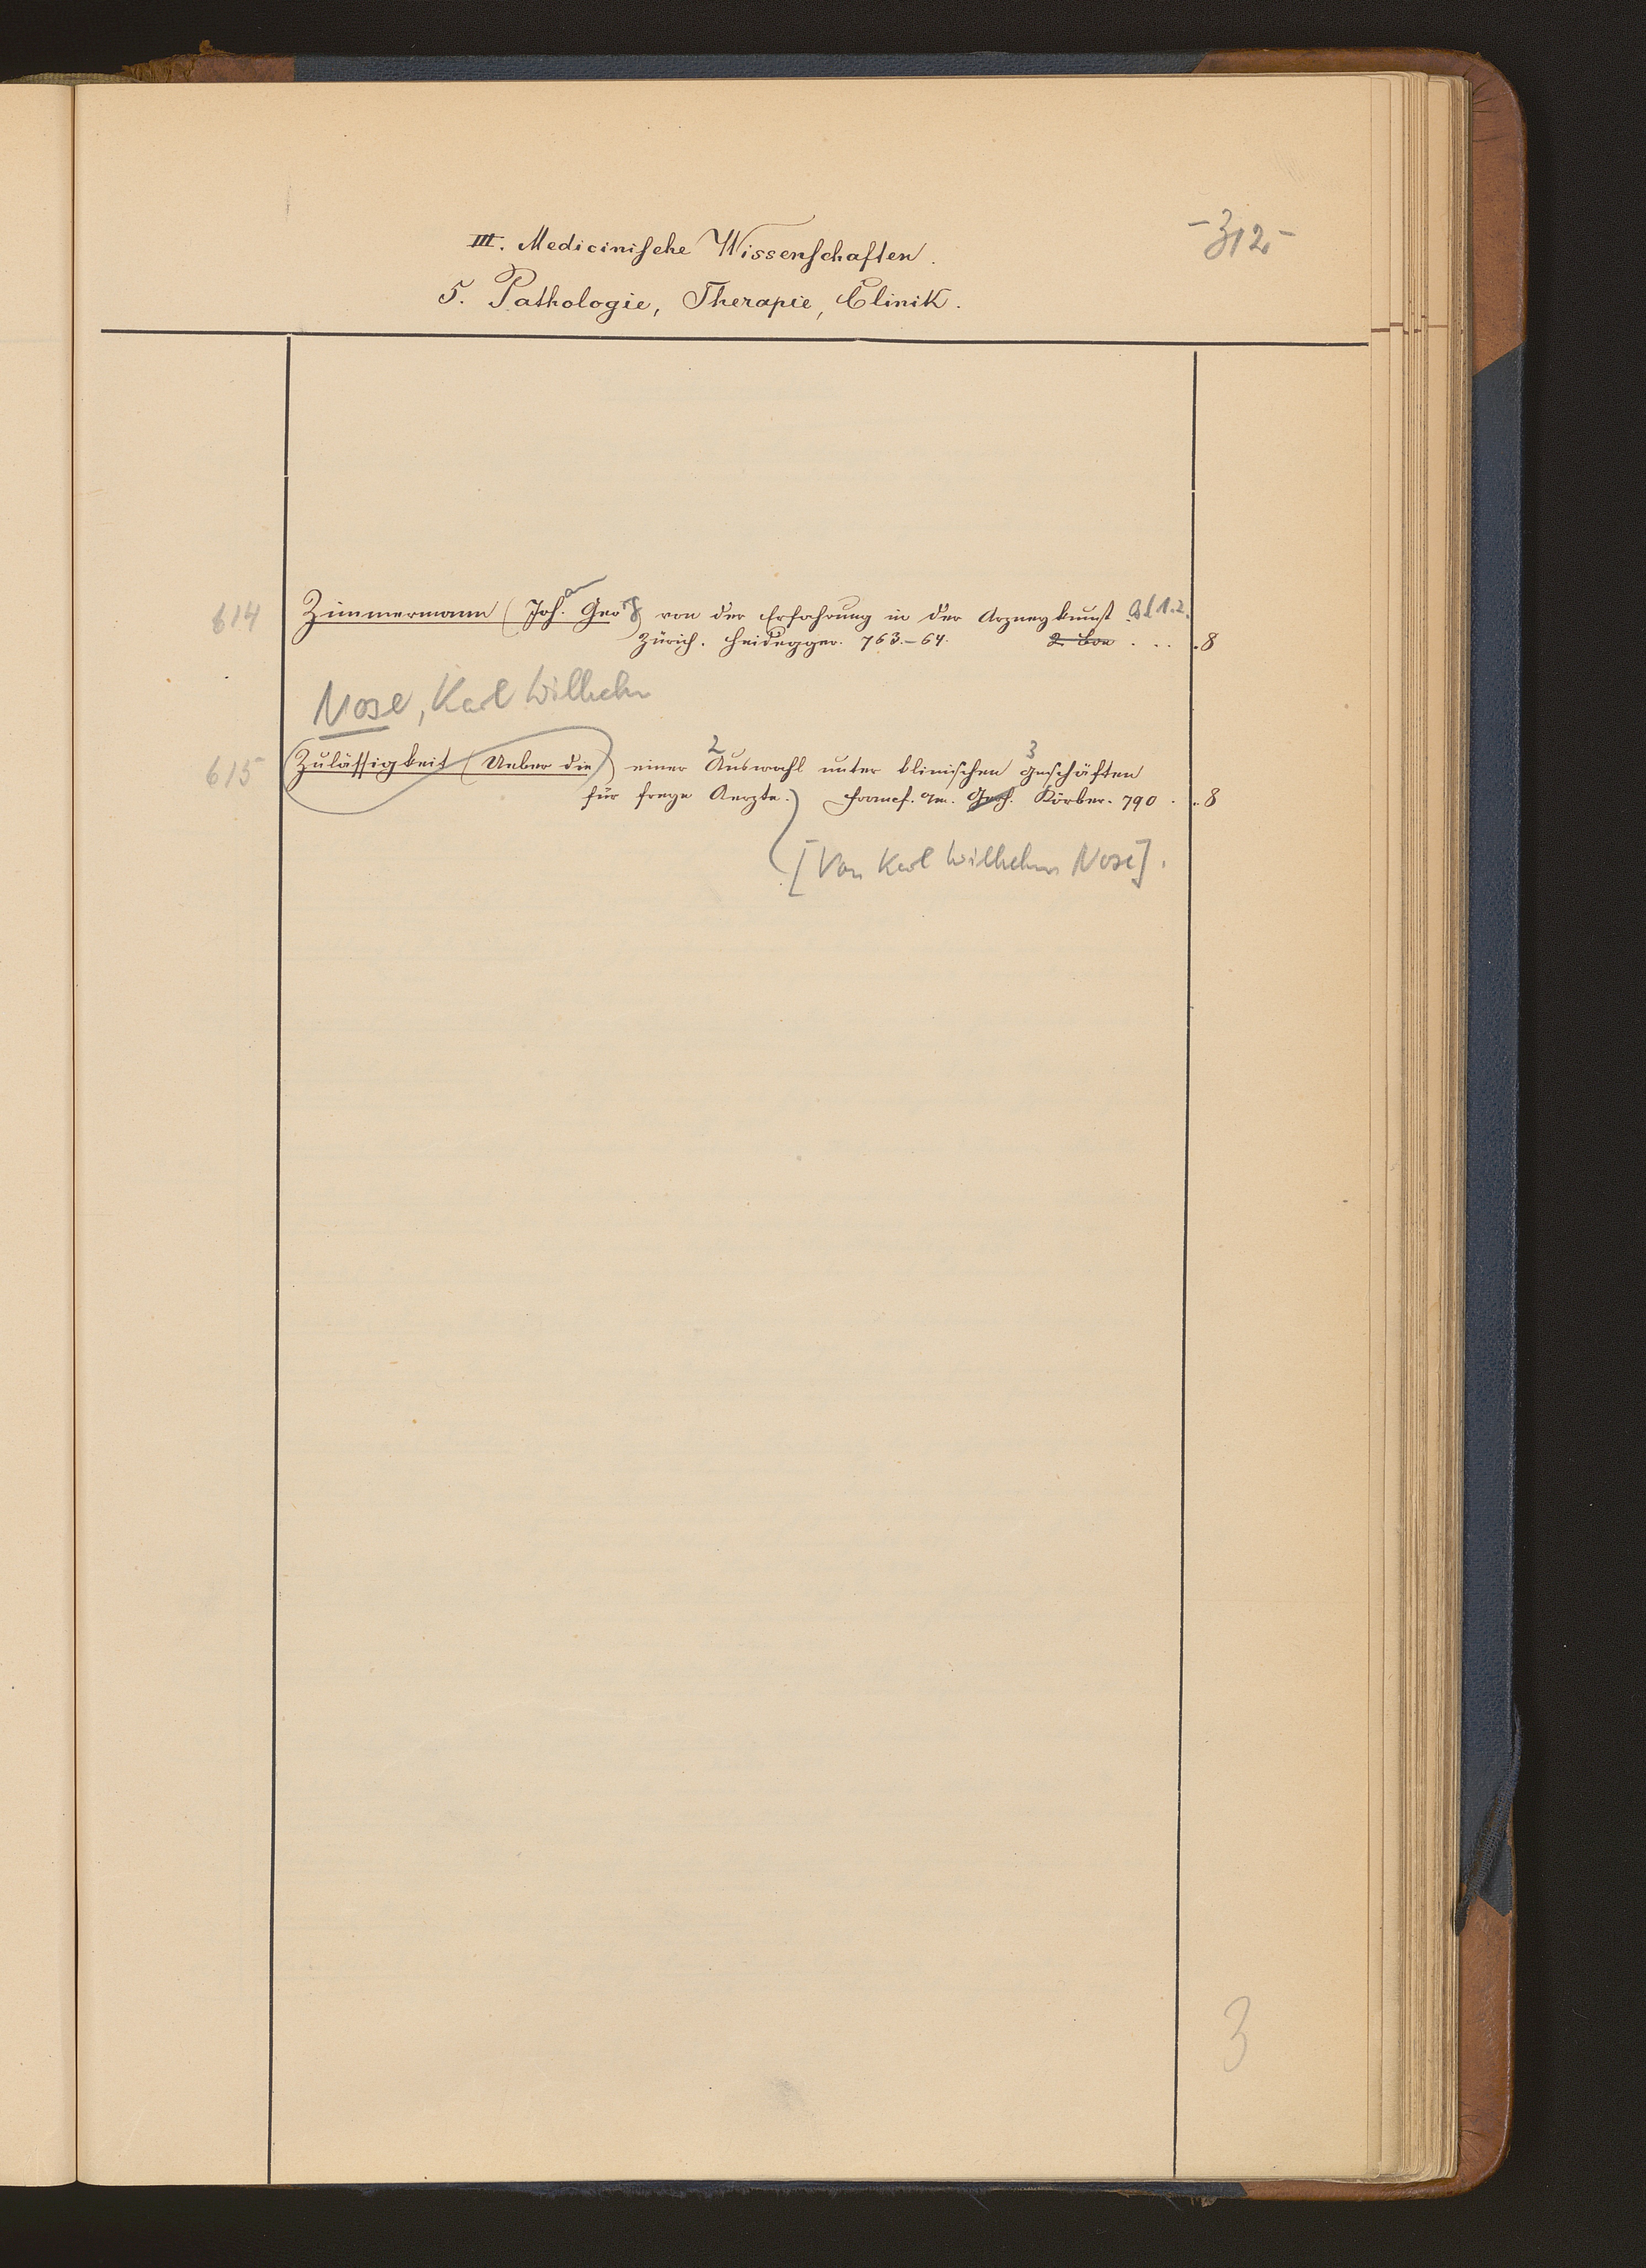 -312-
III. Medicinische Wissenschaften.
5. Pathologie, Therapie, Clinik.
614 Zimmermann (Joh. Geo) von der Erfahrung in der Arzneykunst. Bd 1.2.
Zürich. Heidegger. 763.-64. 2 Bde . . . . 8
Nose, Karl Wilhelm
2 3
615 Zulässigkeit (Ueber die) einer Auswahl unter klinischen Geschäften
für freye Aerzte. Francf. a/m. Körber. 790 . . . 8
[Von Karl Wilhelm Nose].
3